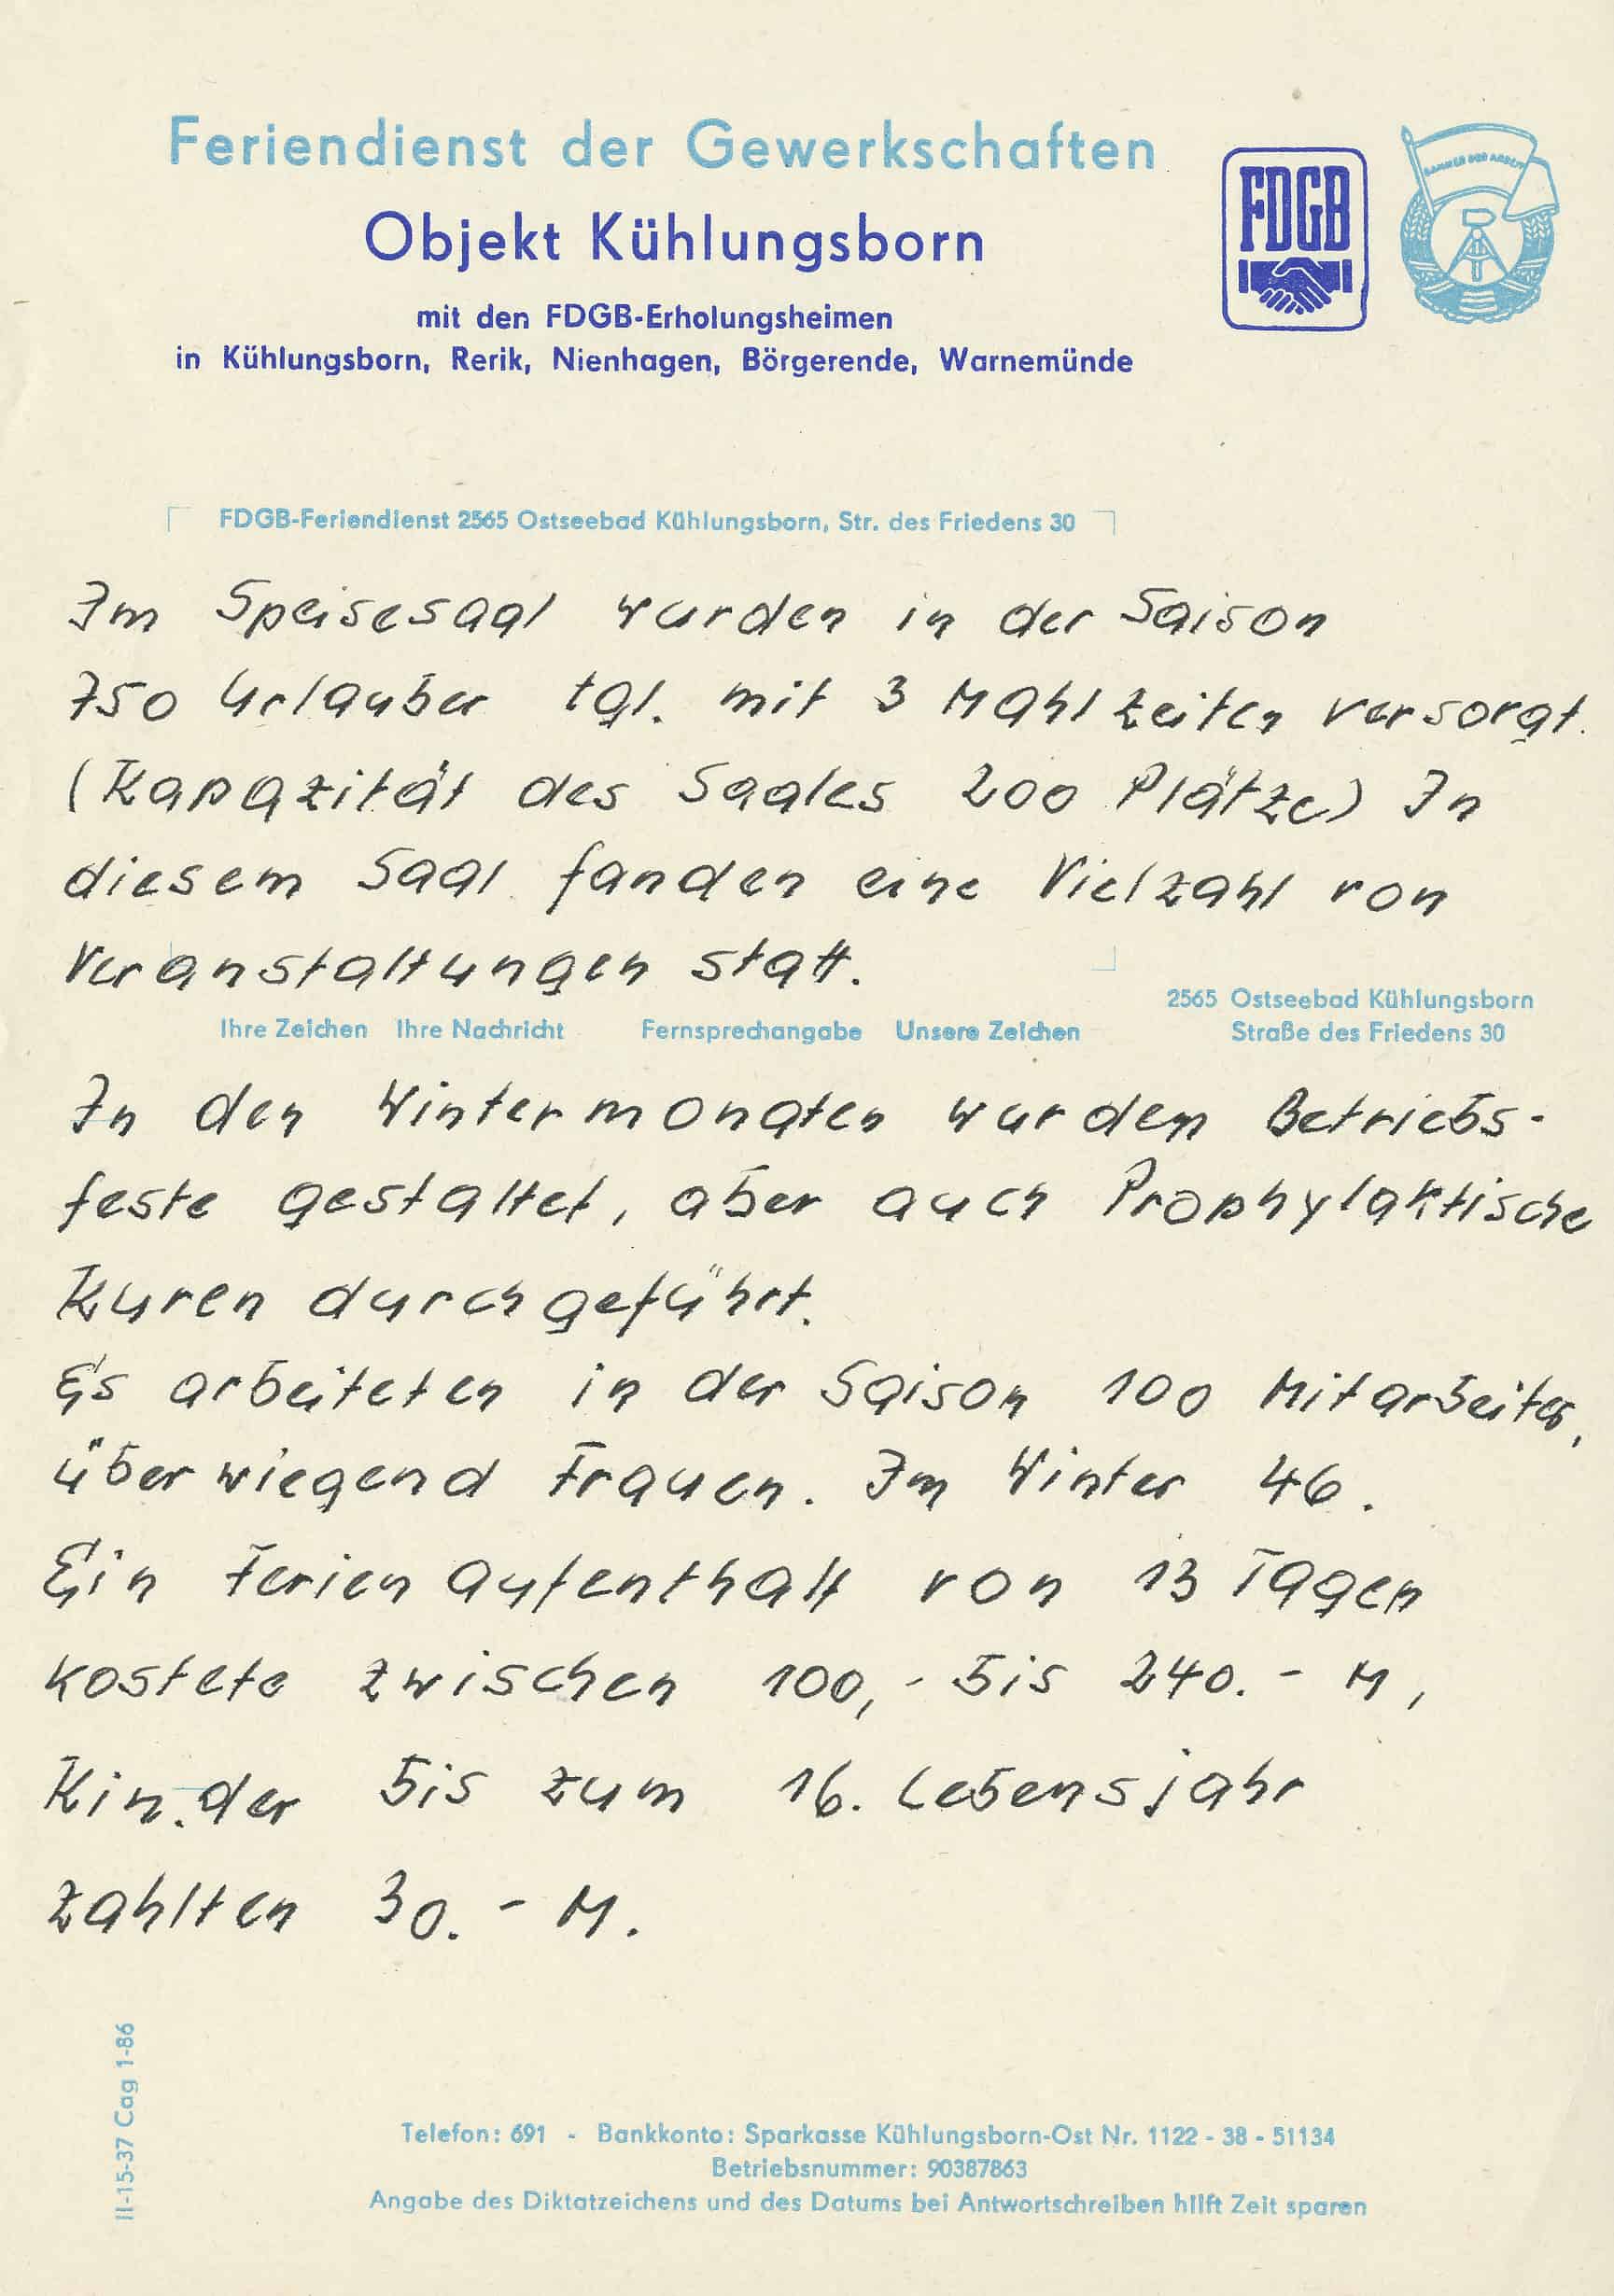 Feriendienst der Gewerkschaften
Objekt Kühlungsborn
mit den FDGB-Erholungsheimen
in Kühlungsborn, Rerik, Nienhagen, Börgerende, Warnemünde
FDGB
BANNER DER ARBEIT
FDGB-Feriendienst 2565 Ostseebad Kühlungsborn, Str. des Friedens 30
Im Speisesaal wurden in der Saison
750 Urlauber tgl. mit 3 Mahlzeiten versorgt.
(Kapazität des Saales 200 Plätze) In
diesem Saal fanden eine Vielzahl von
Veranstaltungen statt.
2565 Ostseebad Kühlungsborn
Straße des Friedens 30
Ihre Zeichen Ihre Nachricht Fernsprechangabe Unsere Zeichen
In den Wintermonaten wurden Betriebs-
feste gestaltet, aber auch Prophylaktische
Kuren durchgeführt.
Es arbeiteten in der Saison 100 Mitarbeiter,
überwiegend Frauen. Im Winter 46.
Ein Ferienaufenthalt von 13 Tagen
kostete zwischen 100,- bis 240.- M,
Kinder bis zum 16. Lebensjahr
zahlten 30.- M.
II-15-37 Cag 1-86
Telefon: 691 - Bankkonto: Sparkasse Kühlungsborn-Ost Nr. 1122 - 38 - 51134
Betriebsnummer: 90387863
Angabe des Diktatzeichens und des Datums bei Antwortschreiben hilft Zeit sparen